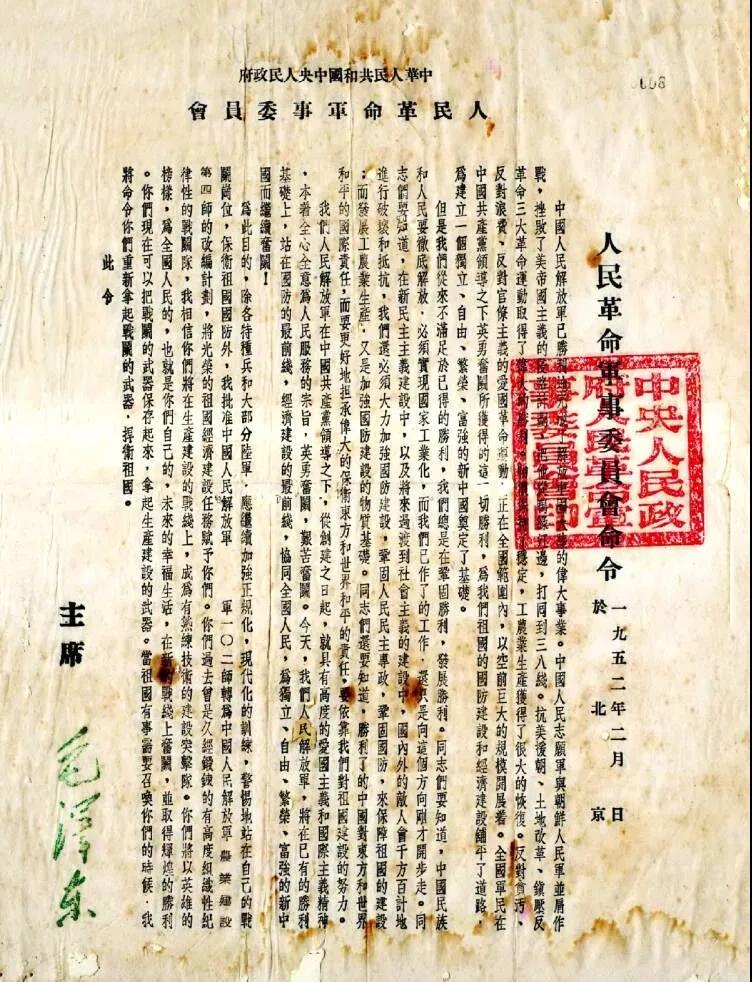 中華人民共和國中央人民政府
人民革命軍事委員會
0008
人民革命軍事委員會命令
一九五二年二月 日
於北京
中央人民政府人民革命軍事委員會印
中國人民解放軍已勝利地完成了解放 的偉大事業。中國人民志願軍與朝鮮人民軍並肩作
戰，挫敗了美帝國主義的侵略 ，把他從鴨綠江邊，打回到三八綫。抗美援朝、土地改革、鎮壓反
革命三大革命運動取得了偉大的勝利。 穩定，工農業生產獲得了很大的恢復。反對貪污、
反對浪費、反對官僚主義的愛國革命運動，正在全國範圍內，以空前巨大的規模開展着。全國軍民在
中國共產黨領導之下英勇奮鬭所獲得的這一切勝利，爲我們祖國的國防建設和經濟建設鋪平了道路，
爲建立一個獨立、自由、繁榮、富強的新中國奠定了基礎。
但是我們從來不滿足於已得的勝利，我們總是在鞏固勝利，發展勝利。同志們要知道，中國民族
和人民要徹底解放，必須實現國家工業化，而我們已作了的工作，還只是向這個方向剛才開步走。同
志們要知道，在新民主主義建設中，以及將來過渡到社會主義的建設中，國內外的敵人會千方百計地
進行破壞和抵抗，我們還必須大力加強國防建設，鞏固人民民主專政，鞏固國防，來保障祖國的建設
；而發展工農業生產，又是加強國防建設的物質基礎。同志們還要知道，勝利了的中國對東方和世界
和平的國際責任，而要更好地担承偉大的保衛東方和世界和平的責任，要依靠我們對祖國建設的努力。
我們人民解放軍在中國共產黨領導之下，從創建之日起，就具有高度的愛國主義和國際主義精神
，本着全心全意爲人民服務的宗旨，英勇奮鬭，艱苦奮鬭。今天，我們人民解放軍，將在已有的勝利
基礎上，站在國防的最前綫，經濟建設的最前綫，協同全國人民，爲獨立、自由、繁榮、富強的新中
國而繼續奮鬭！
爲此目的，除各特種兵和大部分陸軍，應繼續加強正規化，現代化的訓練，警惕地站在自己的戰
鬭崗位，保衛祖國國防外，我批准中國人民解放軍 軍一〇二師轉爲中國人民解放軍農業建設
第四師的改編計劃，將光榮的祖國經濟建設任務賦予你們。你們過去曾是久經鍛鍊的有高度組織性紀
律性的戰鬭隊，我相信你們將在生產建設的戰綫上，成爲有熟練技術的建設突擊隊。你們將以英雄的
榜樣，爲全國人民的，也就是你們自己的，未來的幸福生活，在新的戰綫上奮鬭，並取得輝煌的勝利
。你們現在可以把戰鬭的武器保存起來，拿起生產建設的武器。當祖國有事需要召喚你們的時候，我
將命令你們重新拿起戰鬭的武器，捍衛祖國。
此令
主席
毛澤东